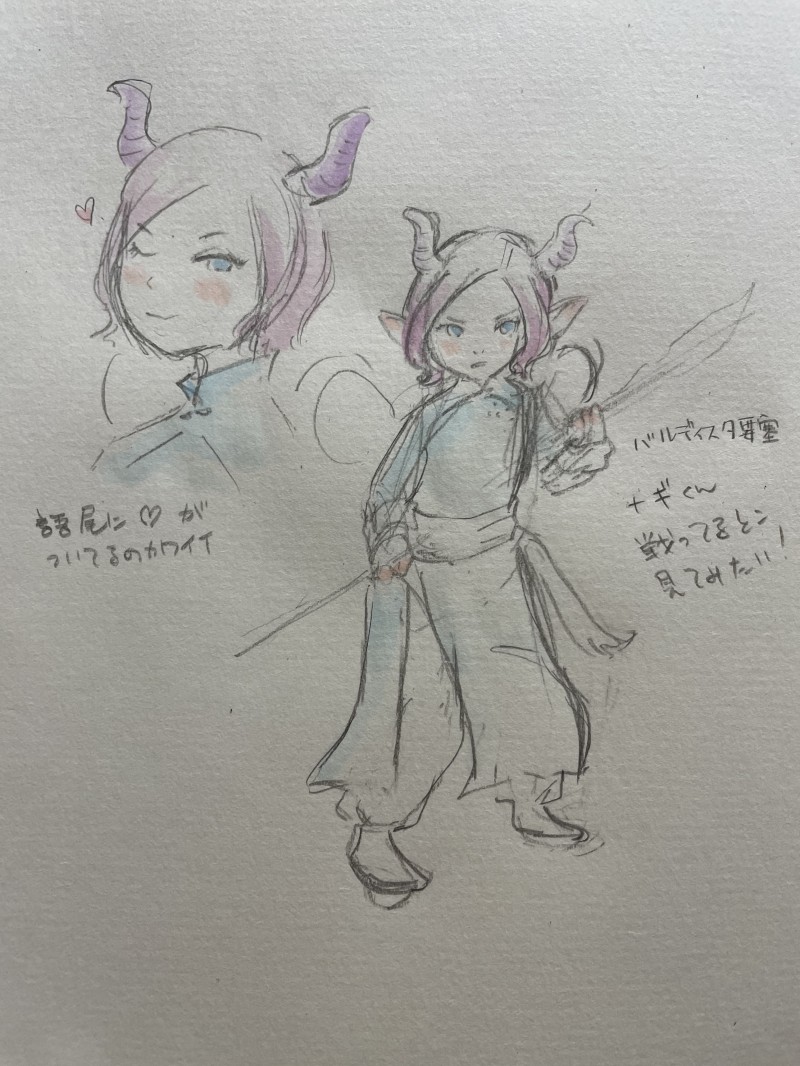 語尾に♡が
ついてるのカワイイ
バルディスタ要塞
ナギくん
戦ってるとこ
見てみたい!